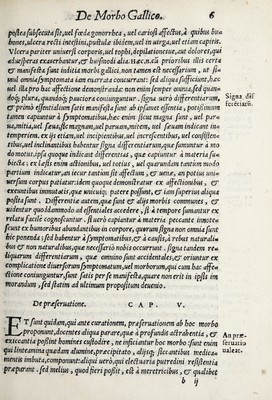 De Morbo Gallico. 6
postea subsecuta sit, uel fœda gonorrhea, uel cariosi affectus, à quibus bu-
bones, ulcera recti intestini, pustulæ ibidem, uel in uirga, uel etiam capitis.
Vlcera pariter uniuersi corporis, uel tophi, depilationesue, aut dolores, quæ
aduesperas exacerbantur, & huiusmodi alia. Hæc. n. cū prioribus illis certa
& manifesta sunt inditia morbi gallici, non tamen est necessarium, ut si-
mul omnia symptomata iam enarrata concurrant: sed
uel illa pro hac affectione demonstranda: non enim semper omnia, sed quan-
doq; plura, quandoq; pauciora coniunguntur. signa uerò differentiarum,
& primò essentialium satis manifesta sunt ab ipsamet essentia, possunt
tamen capiuntur à symptomatibus, hæc enim sicut magna sunt, uel par-
ua, mitia, uel sæua, sic magnum, uel paruum, mitem, uel sæuum indicant in-
temperiem. ex ijs etiam, uel incipientibus, uel increscentibus, uel consisten-
tibus, uel inclinantibus habentur signa differentiarum, quæ sumuntur à mo
do motus. ipsa quoque indicant differentias, quæ capiuntur à materia su-
biecta: ex læsis enim actionibus, uel totius, uel quarundam tantùm modo
partium indicatur, an iecur tantùm sit affectum, & uenæ, an potius uni-
uersum corpus patiatur: idem quoque demonstratur ex affectionibus, &
excretibus immutatis, quæ unicuiq; patere possunt, ex iam superius aliquæ
posita sunt. Differentiæ autem, quæ sunt & alijs morbis communes, &
uidentur quodammodo ad essentiales accedere, si à tempore sumantur ex
relatu facilè cognoscuntur. si uerò capiantur à materia peccante immote
scunt ex humoribus abundantibus in corpore, quorum signa non omnia sunt
hic ponenda: sed habentur à symptomatibus, & à causis, à rebus naturali-
bus & non naturalibus, quæ necessariò nobis occurrunt. signa tandem re-
liquarum differentiarum, quæ omnino sunt accidentales, & oriuntur ex
complicatione diuersorum symptomatum, uel morborum, qui cum hac affe-
ctione coniunguntur, sunt satis per se manifesta, quare non erit in ipsis im
morandum, sed statim ad ultimum propositum deuenio.
De præseruatione. C A P . V .
ET sunt quidam, qui ante curationem, præseruationem ab hoc morbo
proponunt, docentes aliquos parare, quæ à profundè astrabentia, &
exiccantia possint homines custodire, ne inficiantur hoc morbo. sunt enim
qui linteamina quædam alumine, præcipitato, alijsq; siccantibus medica-
mentis imbuta, componunt: aliqui uerò, qui electuaria putredini resistentia
præparant. sed melius, quod fieri possit, est à meretricibus, & qualibet
b ij
Signa dif
ferētiarū.
An præ-
seruatio
ualeat.